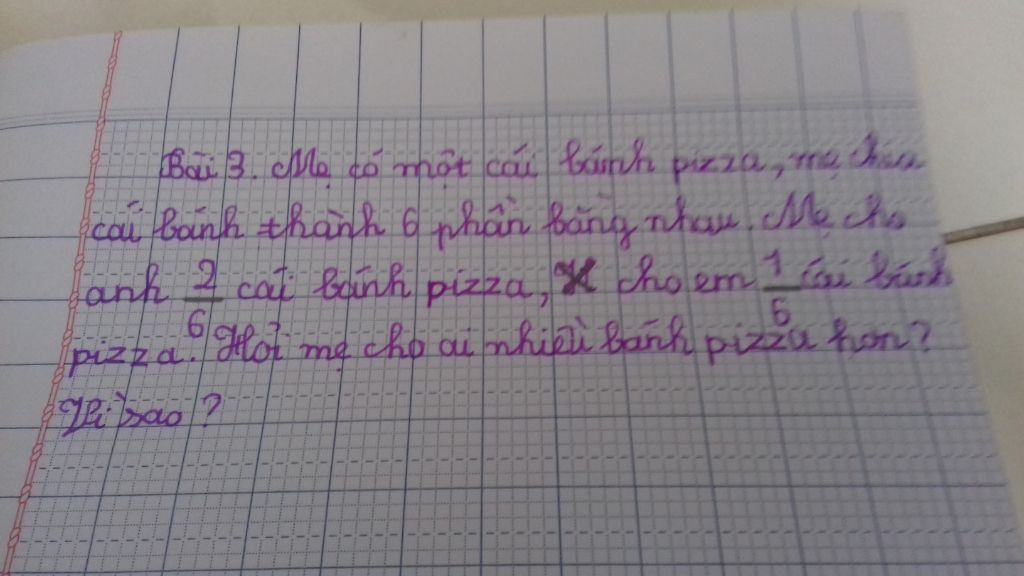 Bài 3. Mẹ có một cái bánh pizza, mẹ chia
cái bánh thành 6 phần bằng nhau. Mẹ cho
anh 2/6 cái bánh pizza, cho em 1/6 cái bánh
pizza. Hỏi mẹ cho ai nhiều bánh pizza hơn?
Vì sao?